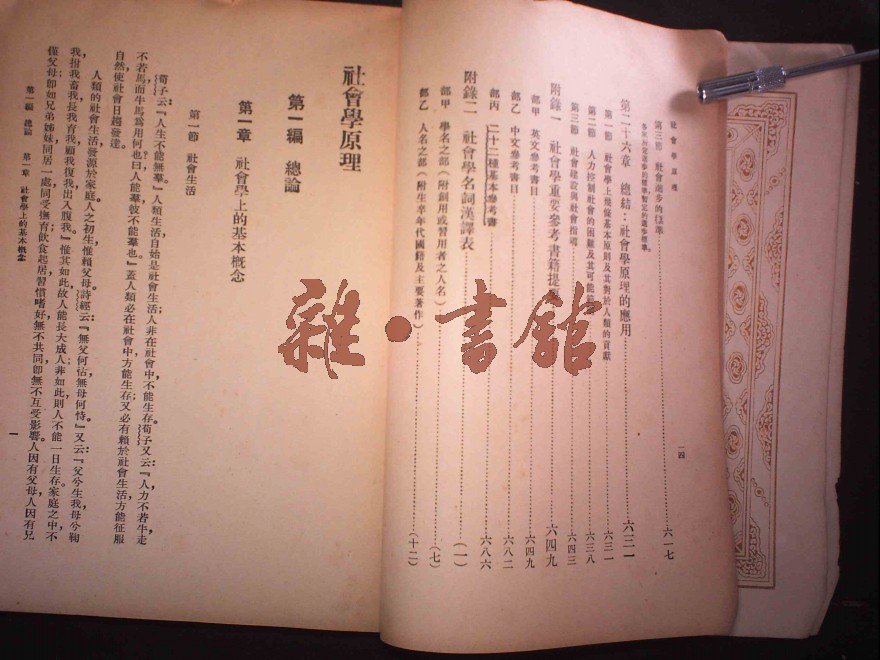 社會學原理
第三節 社會進步的標準
第二十六章 總結：社會學原理的應用 六三一
第一節 社會學上幾條基本原則及其對於人類的貢獻 六三一
第二節 人力控制社會的困難及其可能 六三八
第三節 社會建設與社會指導 六四三
附錄一 社會學重要參考書籍提要 六四九
部甲 英文參考書目 六四九
部乙 中文參考書目 六八二
部丙 二十二種基本參考書 六八六
附錄二 社會學名詞漢譯表 (一)
部甲 學名之部(附創用或習用者之人名) (七)
部乙 人名之部(附生卒年代國籍及主要著作) (十二)
六一七
一四
社會學原理
第一編 總論
第一章 社會學上的基本概念
第一節 社會生活
荀子云：『人生不能無羣。』人類生活自始是社會生活；人非在社會中不能生存。荀子又云：『人力不若牛，走
不若馬，而牛馬爲用何也？曰人能羣，彼不能羣也。』蓋人類必在社會中方能生存；又必有賴於社會生活，方能征服
自然，使社會日趨發達。
人類的社會生活，發源於家庭。人之初生，惟賴父母。詩經云：『無父何怙，無母何恃。』又云：『父兮生我，母兮鞠
我，拊我畜我，長我育我，顧我復我，出入腹我。』惟其如此，故人能長大成人；非如此，則人不能一日生存。家庭之中，不
僅父母，卽如兄弟姊妹，同居一處，同受撫育，飲食起居，習慣嗜好，無不共同，卽無不互受影響。人因有父母，人因有兄
第一編 總論 第一章 社會學上的基本概念
一
雜·書館